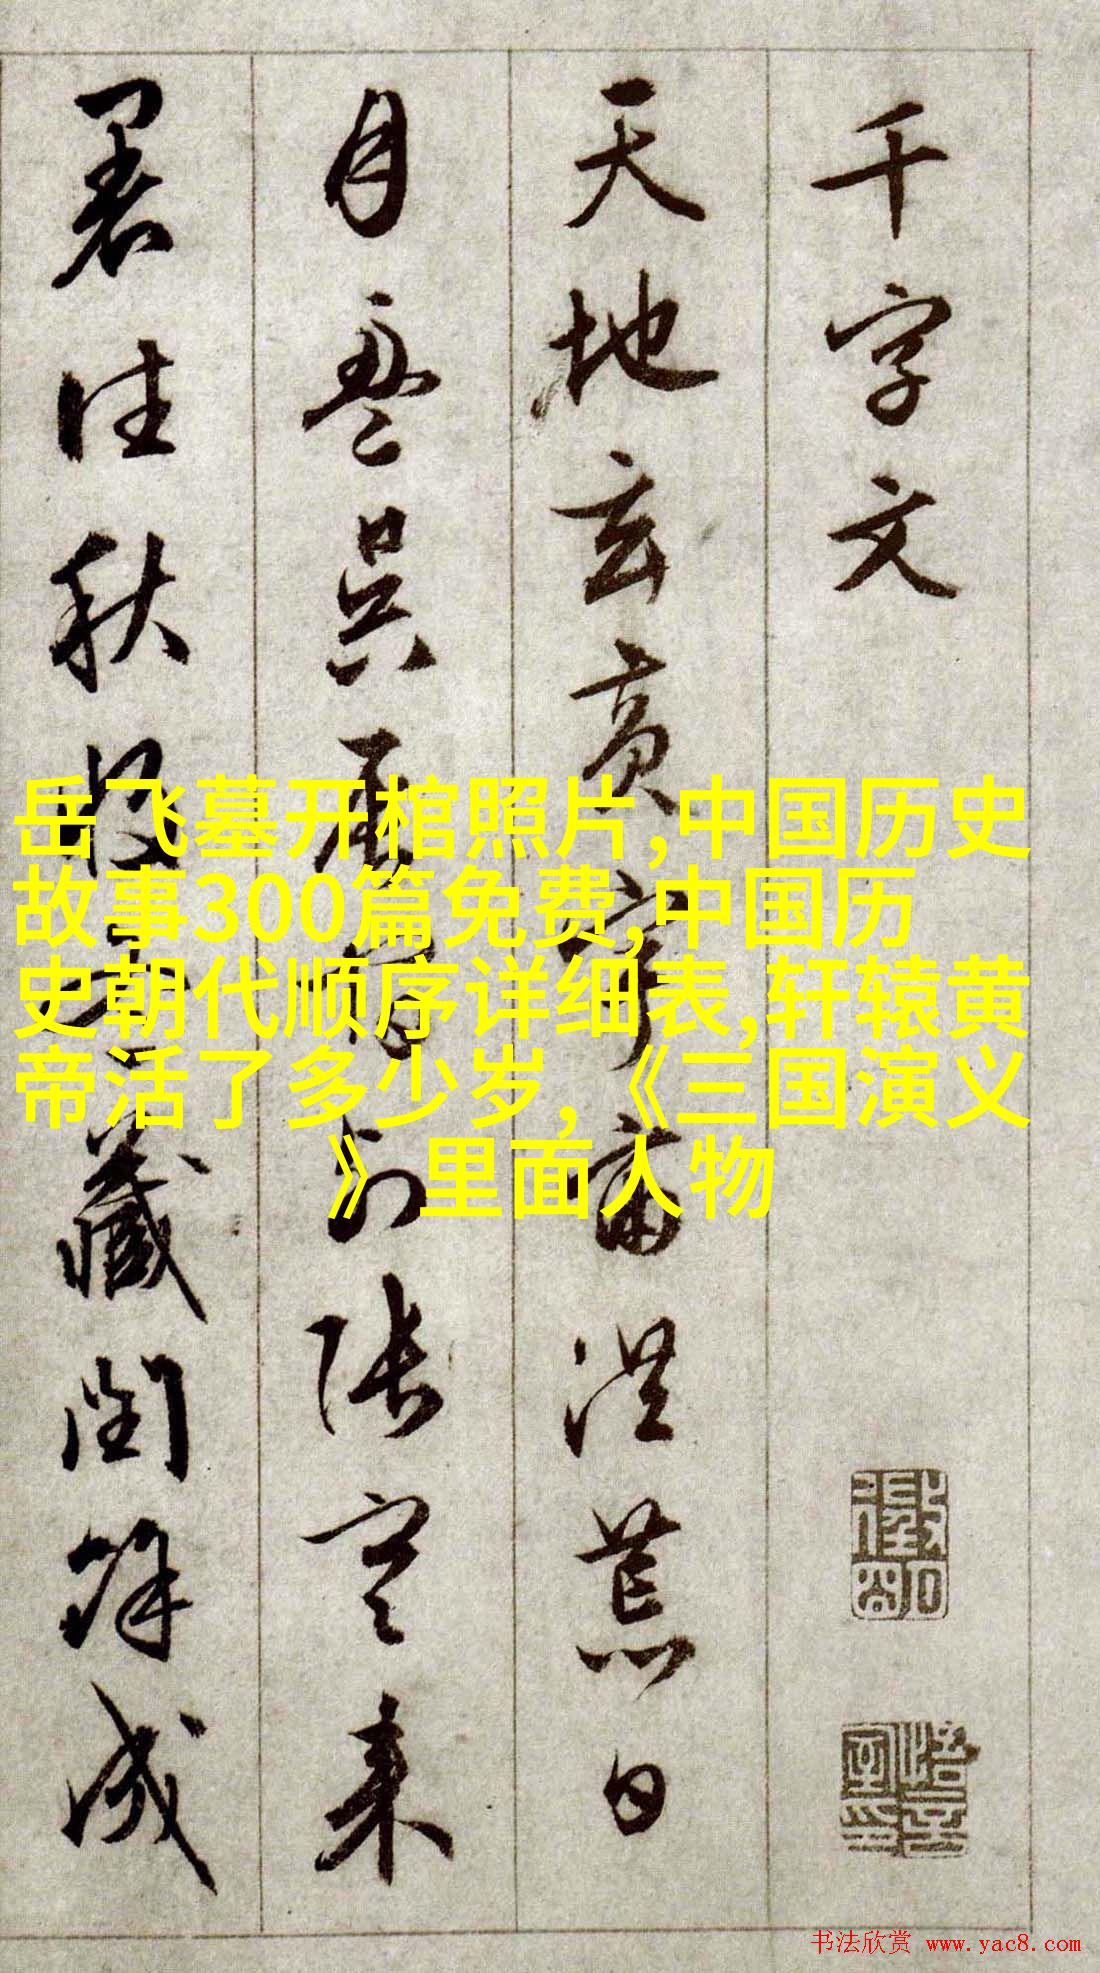 千字文
天地玄黄宇宙洪荒日
月盈昃辰宿列张寒来
暑往秋收冬藏闰余成
岳飞墓开棺照片,中国历史
故事300篇免费,中国历
史朝代顺序详细表,轩辕黄
帝活了多少岁,《三国演义
》里面人物
书法欣赏 www.yac8.com